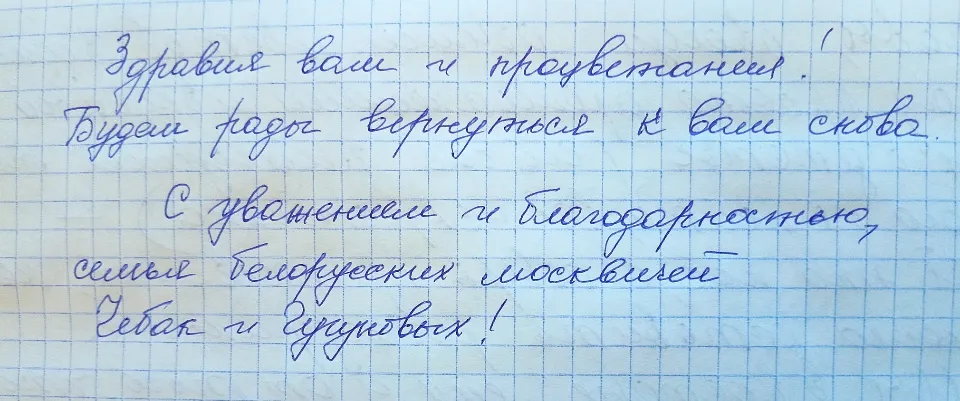 Здравия вам и процветания!
Будем рады вернуться к вам снова.
С уважением и благодарностью,
семья белорусских москвичей
Чебак и !